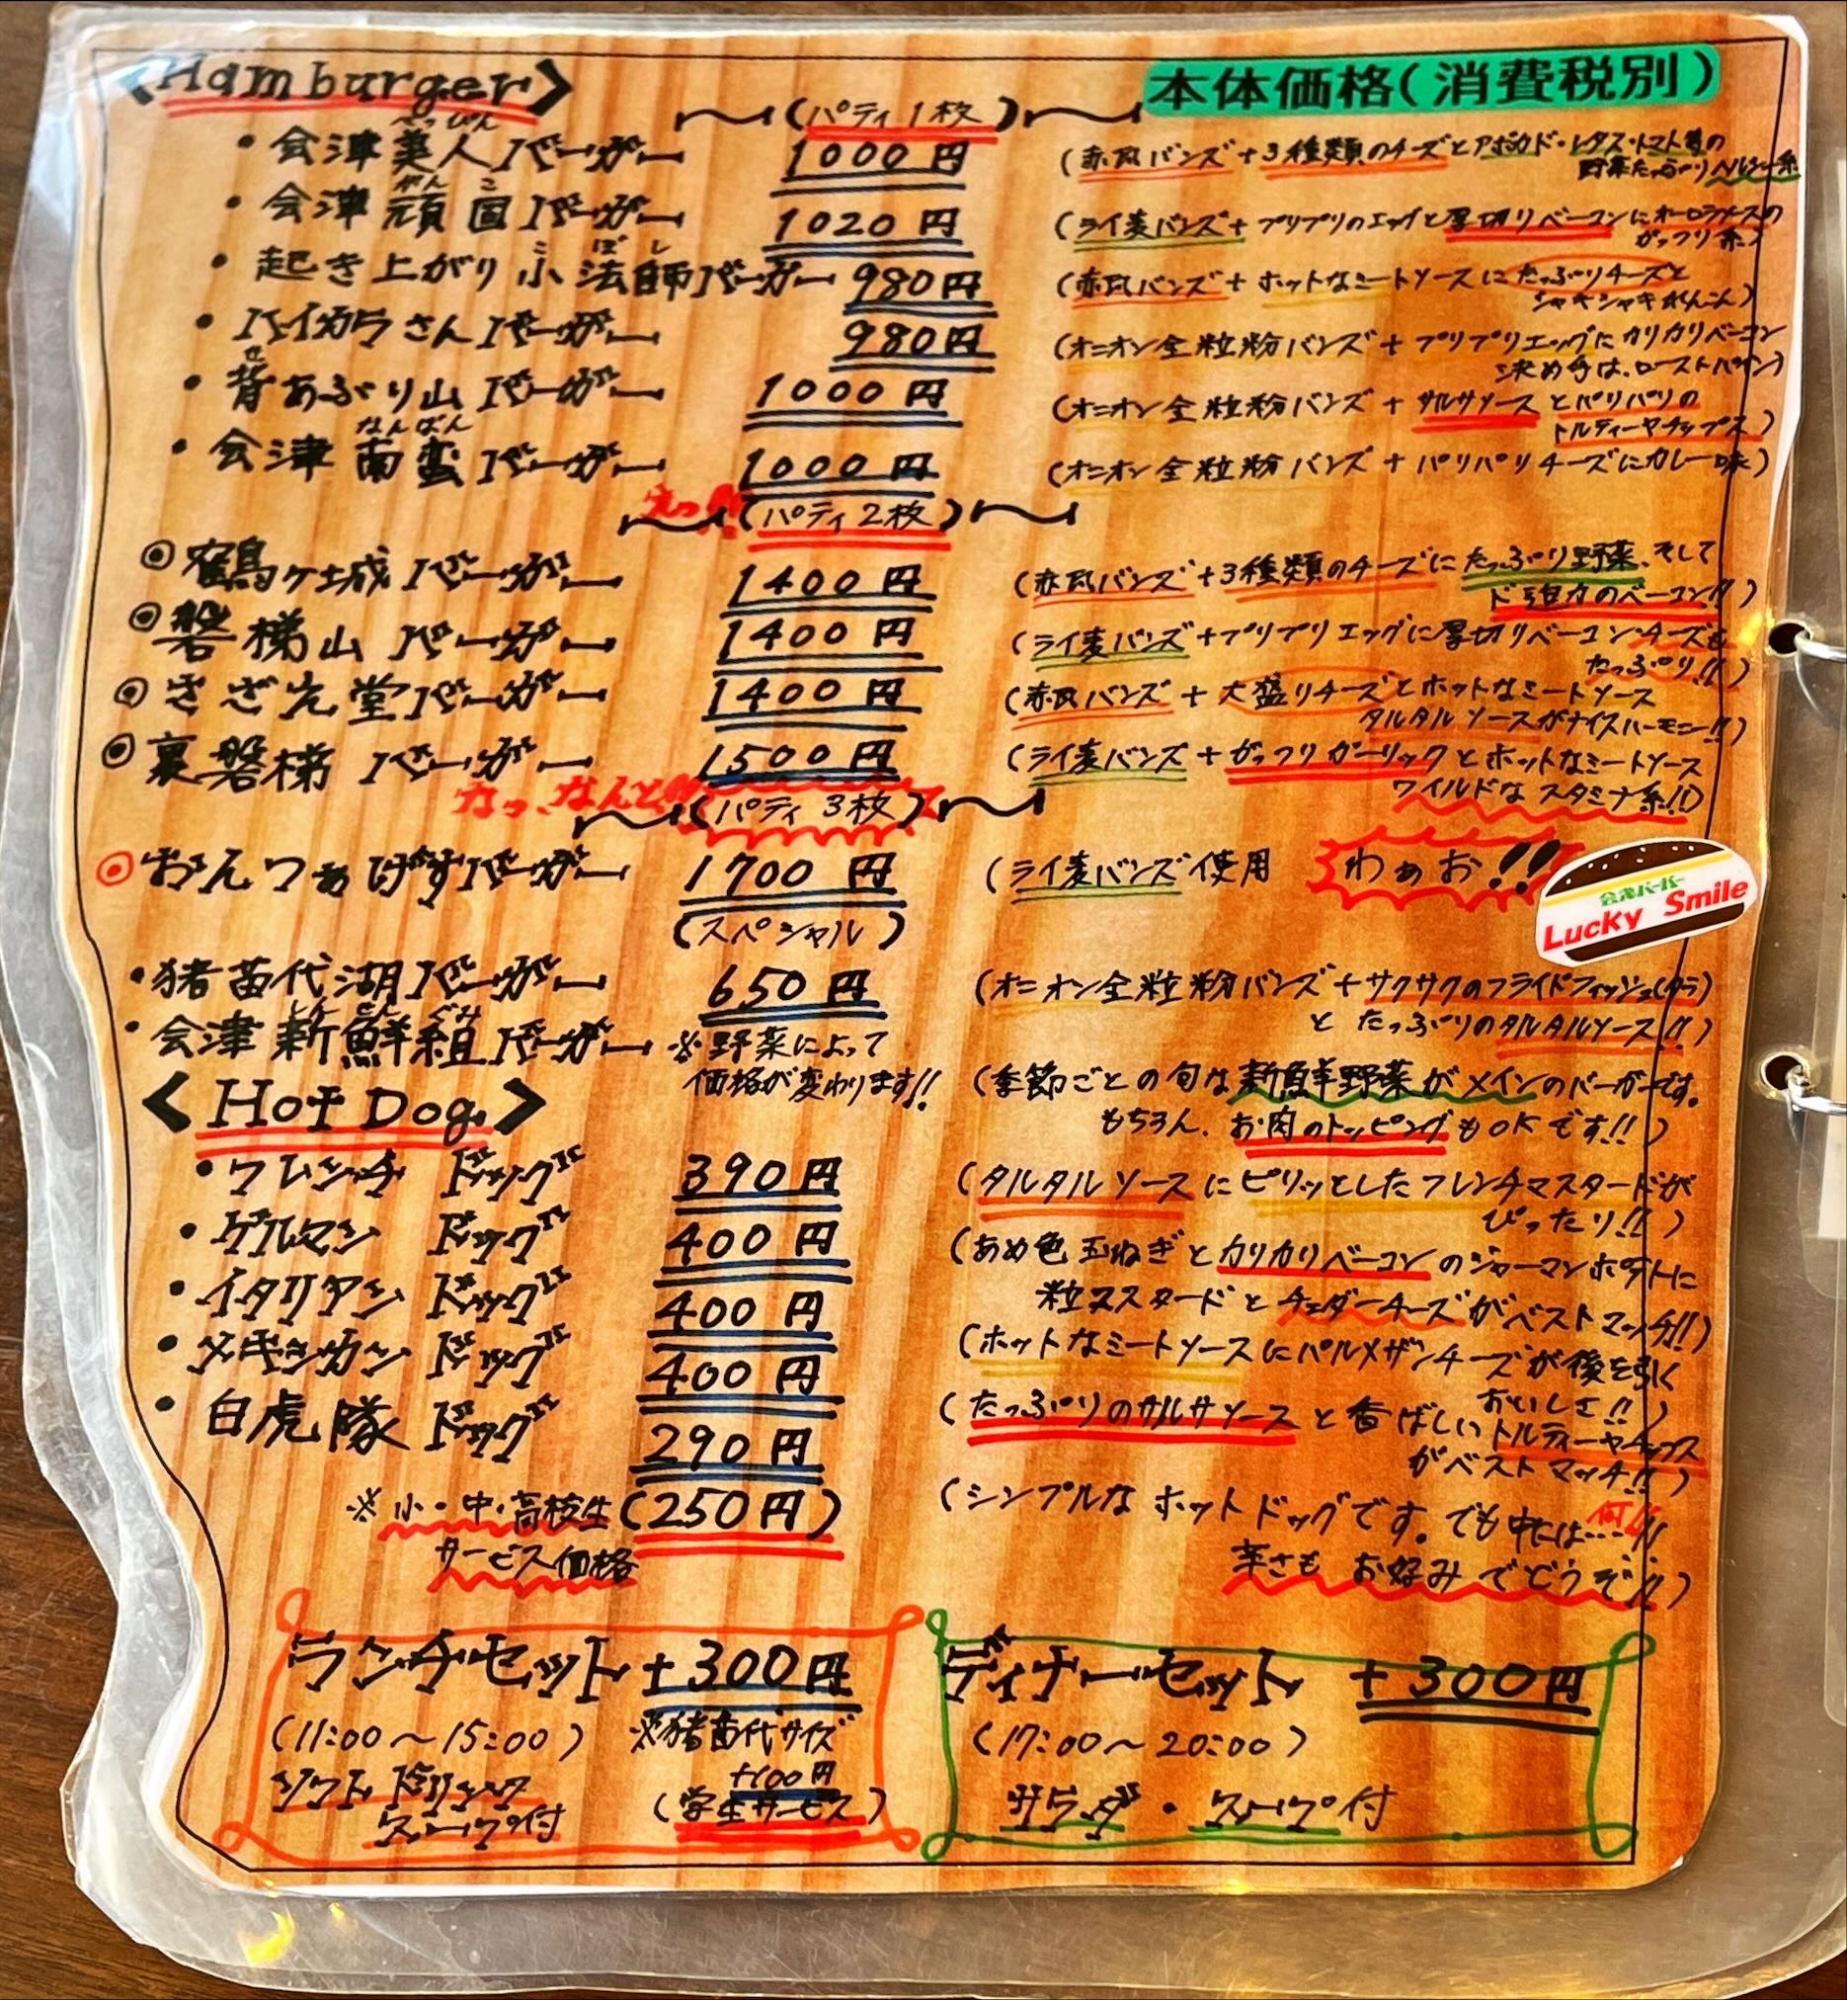 <Hamburger>
本体価格(消費税別)
(パティ1枚)
べっぴん
・会津美人バーガー 1000円 (赤瓦バンズ+3種類のチーズとアボカド・レタス・トマト等の
野菜たっぷりヘルシー系
がん こ
・会津頑固バーガー 1020円 (ライ麦バンズ+プリプリのエッグと厚切りベーコンにオーロラソースの
がっつり系)
こ ぼ し
・起き上がり小法師バーガー 980円 (赤瓦バンズ+ホットなミートソースにたっぷりチーズと
シャキシャキれんこん)
・ハイカラさんバーガー 980円 (オニオン全粒粉バンズ+プリプリエッグにカリカリベーコン
決め手は、ローストパイン)
せ
・背あぶり山バーガー 1000円 (オニオン全粒粉バンズ+サルサソースとパリパリの
トルティーヤチップス)
なんばん
・会津南蛮バーガー 1000円 (オニオン全粒粉バンズ+パリパリチーズにカレー味)
えっ!! (パティ2枚)
◎鶴ヶ城バーガー 1400円 (赤瓦バンズ+3種類のチーズにたっぷり野菜、そして
ド迫力のベーコン!!)
◎磐梯山バーガー 1400円 (ライ麦バンズ+プリプリエッグに厚切りベーコン・チーズも
たっぷり!!)
◎さざえ堂バーガー 1400円 (赤瓦バンズ+大盛りチーズとホットなミートソース
タルタルソースがナイスハーモニー!!)
◎裏磐梯バーガー 1500円 (ライ麦バンズ+ガッツリガーリックとホットなミートソース
ワイルドなスタミナ系!!)
なっ、なんと!! (パティ3枚)
◎おんつぁげすバーガー 1700円 (ライ麦バンズ使用 わぁお!!
会津バーガー
Lucky Smile
(スペシャル)
・猪苗代湖バーガー 650円 (オニオン全粒粉バンズ+サクサクのフライドフィッシュ(タラ)
とたっぷりのタルタルソース!!)
しん せん ぐみ
・会津新鮮組バーガー ※野菜によって
価格が変わります!!
(季節ごとの旬な新鮮野菜がメインのバーガーです。
もちろん、お肉のトッピングもOKです!!)
<Hot Dog>
・フレンチドッグ 390円 (タルタルソースにピリッとしたフレンチマスタードが
ぴったり!!)
・ゲルマンドッグ 400円 (あめ色玉ねぎとカリカリベーコンのジャーマンポテトに
粒マスタードとチェダーチーズがベストマッチ!!)
・イタリアンドッグ 400円 (ホットなミートソースにパルメザンチーズが後を引く
おいしさ!!)
・メキシカンドッグ 400円 (たっぷりのサルサソースと香ばしいトルティーヤチップス
がベストマッチ!!)
・白虎隊ドッグ 290円 (シンプルなホットドッグです。でも中には....何!!
辛さもお好みでどうぞ!!)
※小・中・高校生(250円)
サービス価格
ランチセット +300円
(11:00〜15:00) ※猪苗代サイズ
+100円
ソフトドリンク
スープ付
(学生サービス)
ディナーセット +300円
(17:00〜20:00)
サラダ・スープ付